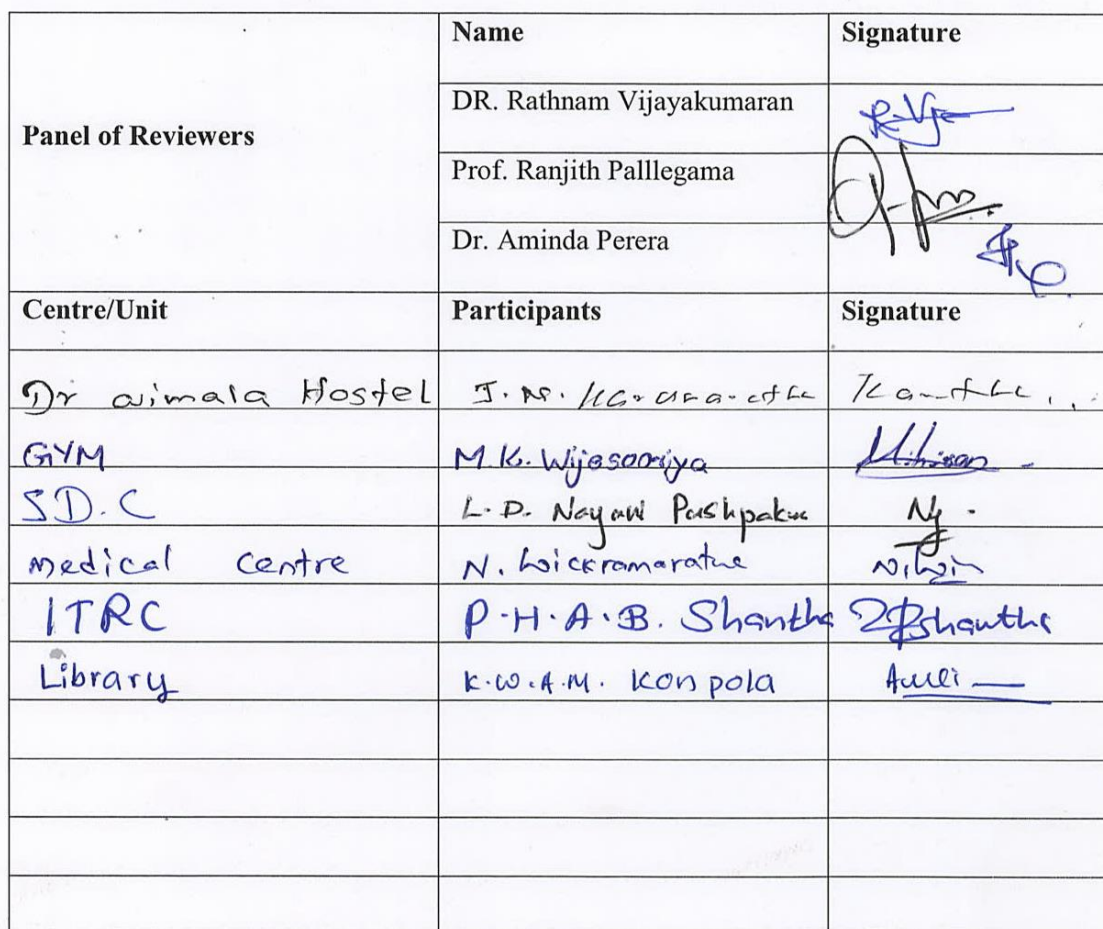 Name Signature
Panel of Reviewers
DR. Rathnam Vijayakumaran
Prof. Ranjith Palllegama
Dr. Aminda Perera
Centre/Unit Participants Signature
Dr wimala Hostel J. N.
GYM M.K. Wijesooriya
S.D.C L.D. Nayani Pushpa
Medical Centre N. Wickramaratne
ITRC P.H.A.B. Shantha Shantha
Library K.W.A.M. Konpola